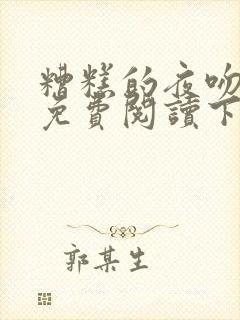 糟糕的夜吻
免費閱讀下
郭某生